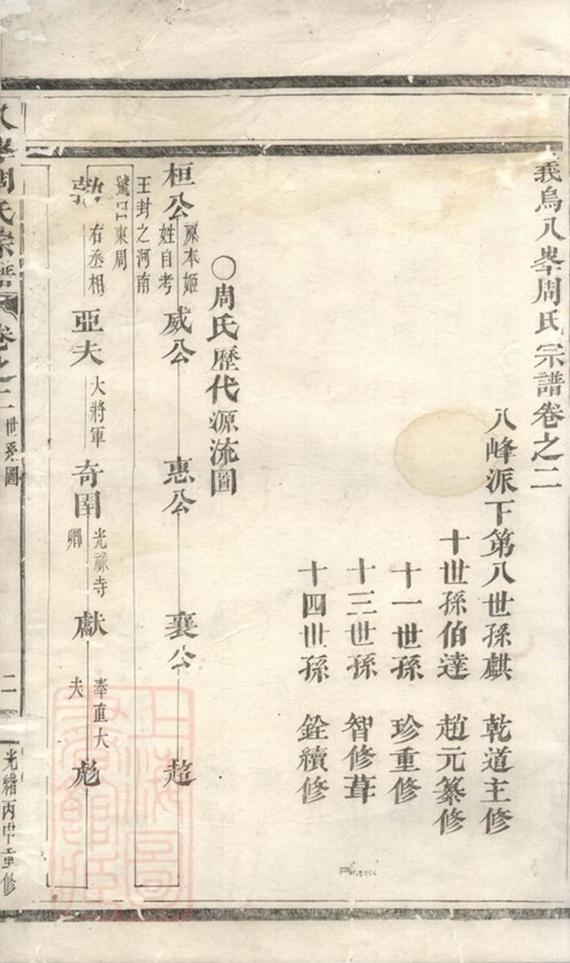 義烏八峯周氏宗譜卷之二
八峰派下第八世孫麒 乾道主修
十世孫伯達 趙元纂修
十一世孫 珍重修
十三世孫 智修葺
十四世孫 銓續修
○周氏歷代源流圖
桓公 原本姬姓自考王封之河南號曰東周 威公 惠公 襄公 超
勃 右丞相 亞夫 大將軍 奇圉 光祿寺卿 獻 奉直大夫 彪
八峯周氏宗譜 卷之二 世系圖 二 光緒丙申重修